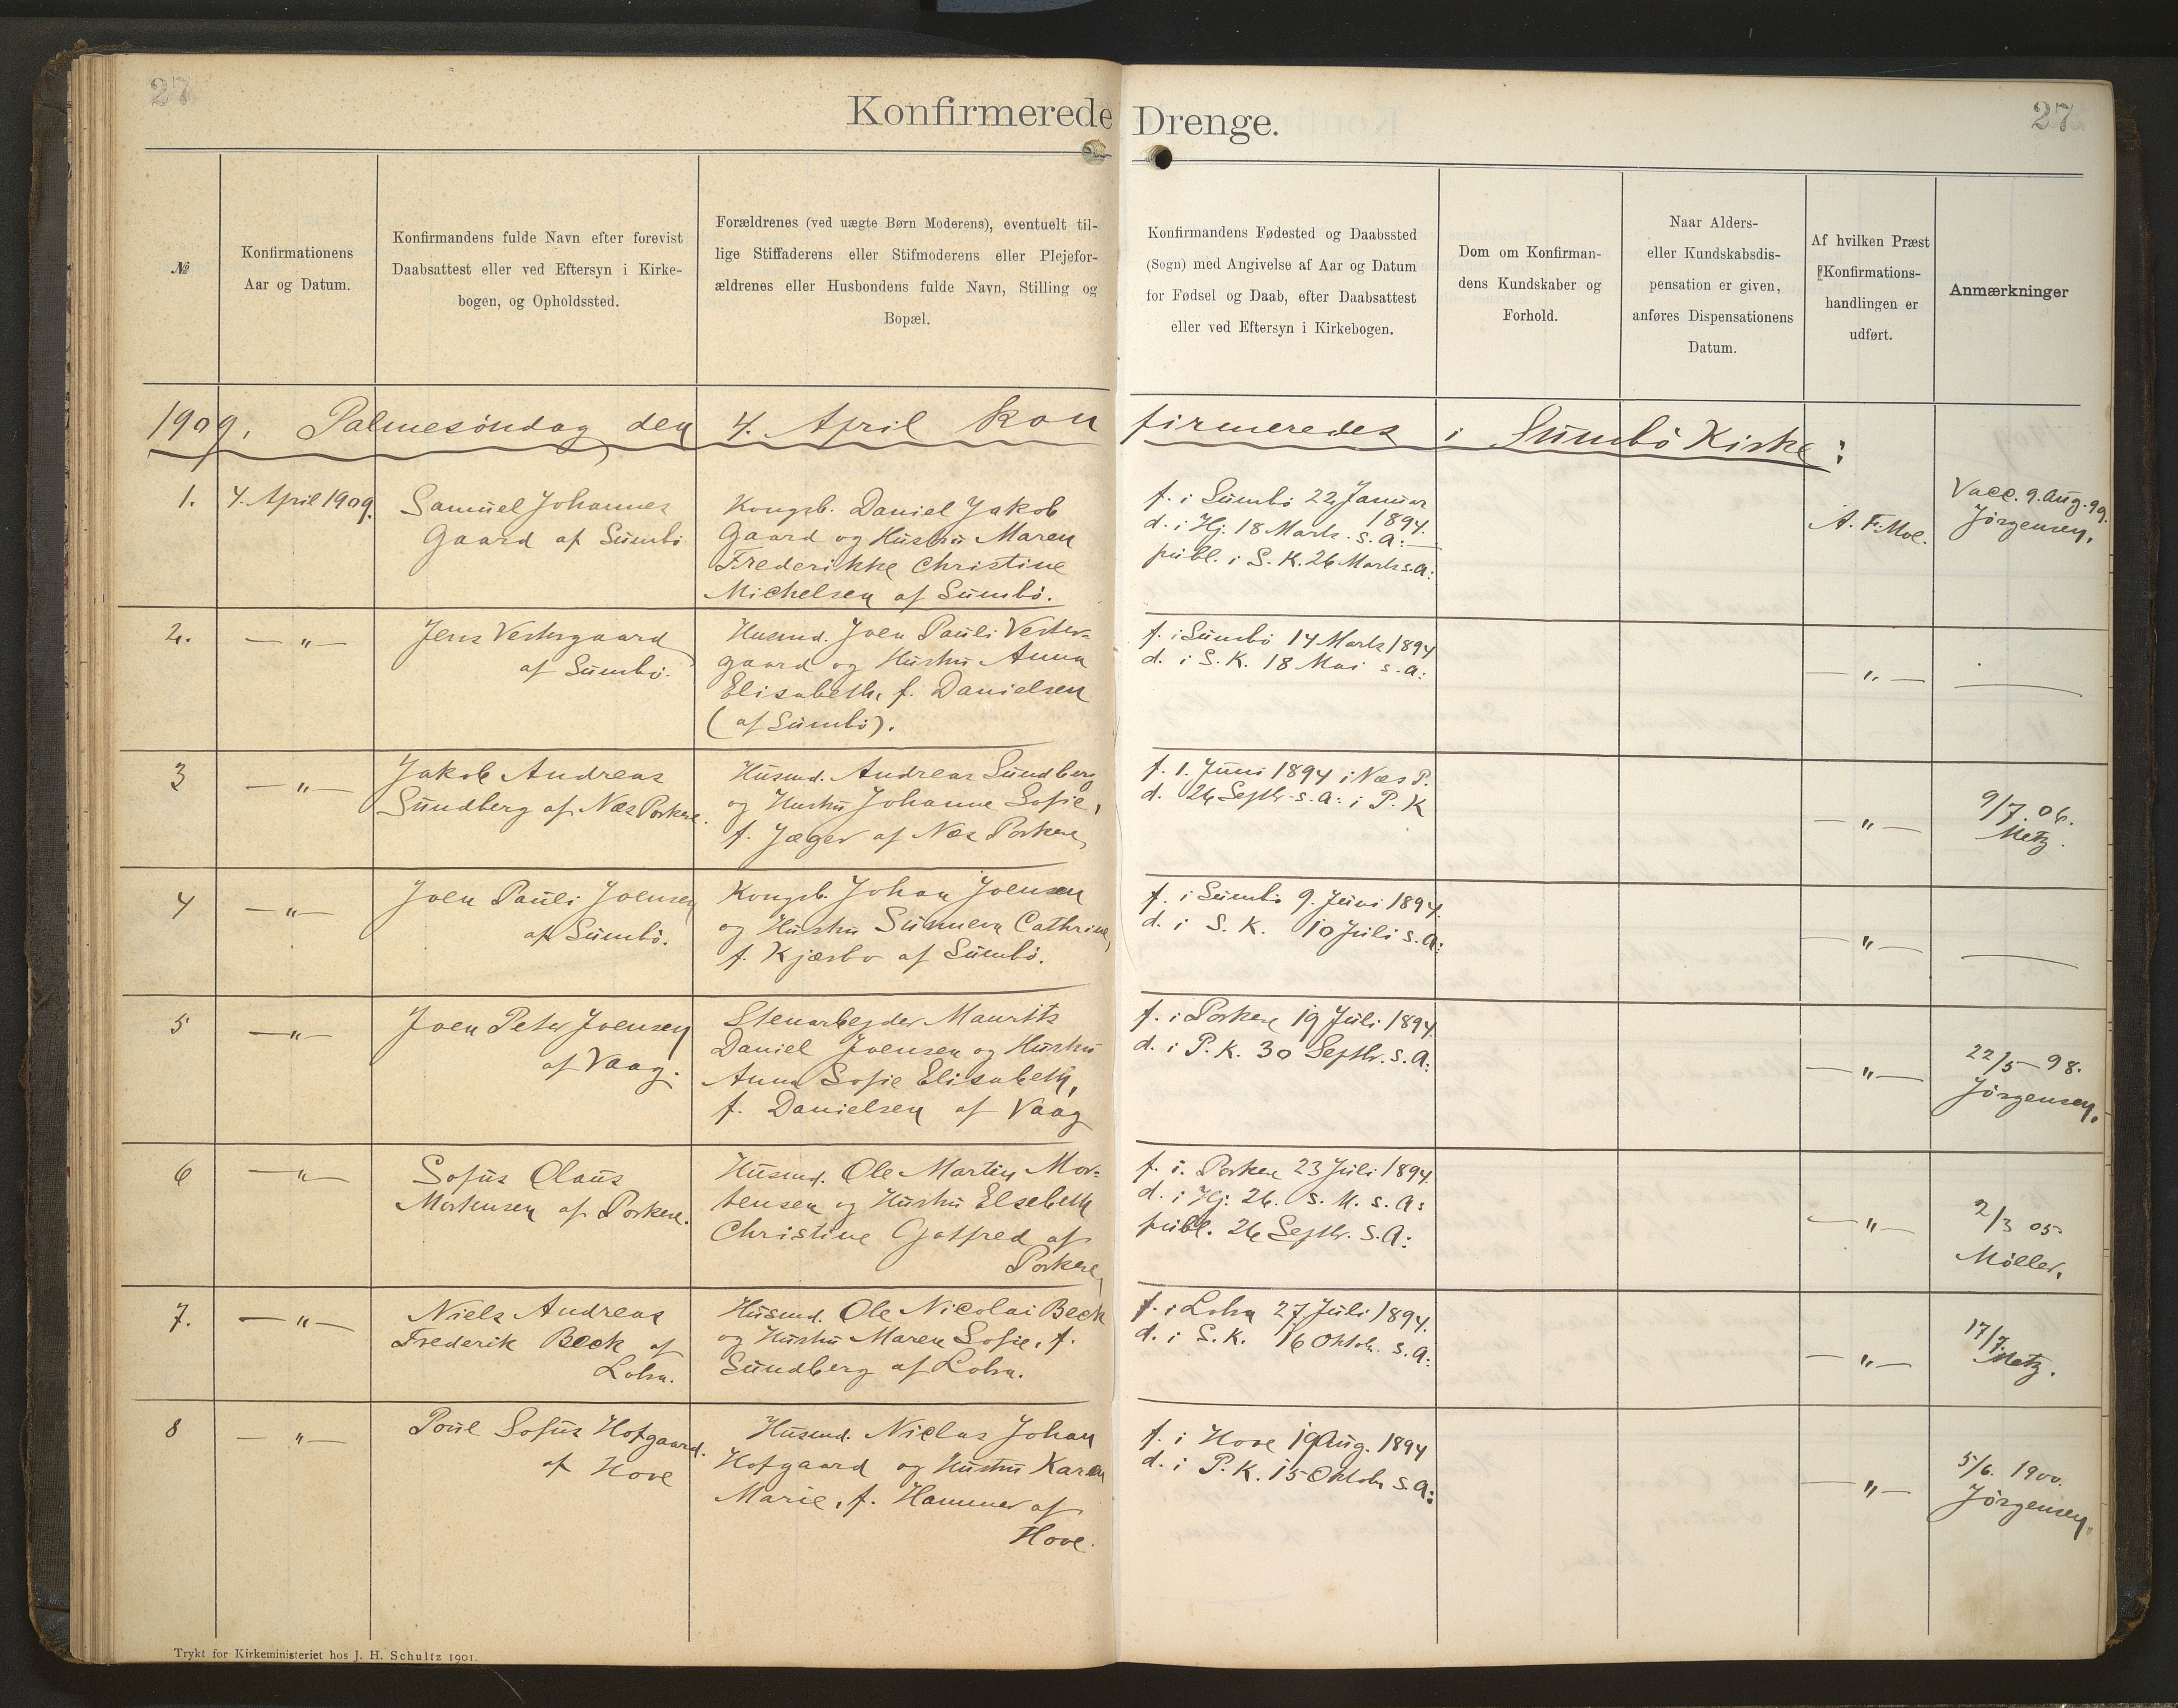 27
27
Konfirmerede Drenge.
№
Konfirmationens
Aar og Datum.
Konfirmandens fulde Navn efter forevist
Daabsattest eller ved Eftersyn i Kirke-
bogen, og Opholdssted.
Forældrenes (ved uægte Børn Moderens), eventuelt til-
lige Stiffaderens eller Stifmoderens eller Plejefor-
ældrenes eller Husbondens fulde Navn, Stilling og
Bopæl.
Konfirmandens Fødested og Daabssted
(Sogn) med Angivelse af Aar og Datum
for Fødsel og Daab, efter Daabsattest
eller ved Eftersyn i Kirkebogen.
Dom om Konfirman-
dens Kundskaber og
Forhold.
Naar Alders-
eller Kundskabsdis-
pensation er given,
anføres Dispensationens
Datum.
Af hvilken Præst
Konfirmations-
handlingen er
udført.
Anmærkninger
1909. Palmesöndag den 4. April konfirmeredes i Sumbö Kirke:
1.
4. April 1909.
Samuel Johannes
Gaard af Sumbö
Kongsb. Daniel Jakob
Gaard og Hustru Maren
Frederikke Christine
Michelsen af Sumbö.
f. i Sumbö 22 Januar
1894.
d. i Hj. 18 Marts. s. A:
publ. i S. K. 26 Marts s. A:
A. F. Moe.
Vacc. 9. Aug. 99.
Jörgensen.
2.
— " —
Jens Vestergaard
af Sumbö.
Husmd. Joen Pauli Vester-
gaard og Hustru Anna
Elisabeth, f. Danielsen
(af Sumbö).
f. i Sumbö 14 Marts 1894
d. i S. K. 18 Mai s. A:
— " —
—
3
— " —
Jakob Andreas
Sundberg af Næs Porkere.
Husmd. Andreas Sundberg
og Hustru Johanne Sofie,
f. Jæger af Næs Porkere,
f. 1. Juni 1894 i Næs P.
d. 26 Septbr. s. A: i P. K
— " —
9/7. 06.
Metz.
4
— " —
Joen Pauli Joensen
af Sumbö.
Kongsb. Johan Joensen
og Hustru Sunneva Cathrine,
f. Kjærbo af Sumbö.
f. i Sumbö 9. Juni 1894.
d. i S. K. 10 Juli s. A:
— " —
—
5
— " —
Joen Peter Joensen
af Vaag.
Stenarbejder Mauritz
Daniel Joensen og Hustru
Anna Sofie Elisabeth,
f. Danielsen af Vaag
f. i Porkere 19 Juli 1894.
d. i P. K. 30 Septbr. s. A:
— " —
22/5 - 98.
Jörgensen.
6
— " —
Sofus Olaus
Mortensen af Porkere.
Husmd. Ole Martin Mor-
tensen og Hustru Elsebeth
Christine Gotfred af
Porkere,
f. i. Porkere 23 Juli 1894.
d. i Hj. 26. s. M. s. A:
publ. 26 Septbr. s. A:
— " —
2/3 05
Möller.
7.
— " —
Niels Andreas
Frederik Beck af
Lobra.
Husmd. Ole Nicolai Beck
og Hustru Maren Sofie, f.
Sundberg af Lobra.
f. i Lobra 27 Juli 1894.
d. i S. K. 16 Oktobr. s. A:
— " —
17/7.
Metz.
8
— " —
Poul Sofus Hofgaard.
af Hove
Husmd. Niclas Johan
Hofgaard og Hustru Karen
Marie, f. Hammer af
Hove.
f. i Hove 19 Aug. 1894
d. i P. K. 15 Oktobr s. A:
— " —
5/6. 1900.
Jörgensen.
Trykt for Kirkeministeriet hos J. H. Schultz 1901.